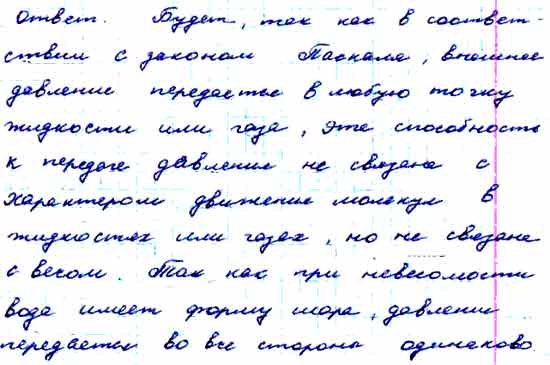 Ответ. Будет, так как в соответ-
ствии с законом Паскаля, внешнее
давление передается в любую точку
жидкости или газа, эта способность
к передаче давления не связана с
характером движение молекул в
жидкостях или газах, но не связана
с весом. Так как при невесомости
вода имеет форму шара, давление
передается во все стороны одинаково